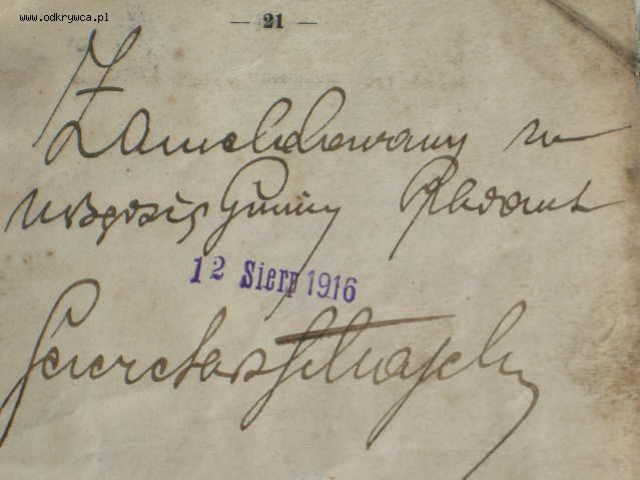 www.odkrywca.pl
— 21 —
Zameldowany w
urzędzie Gminy
12 Sierp 1916
Sekretarz